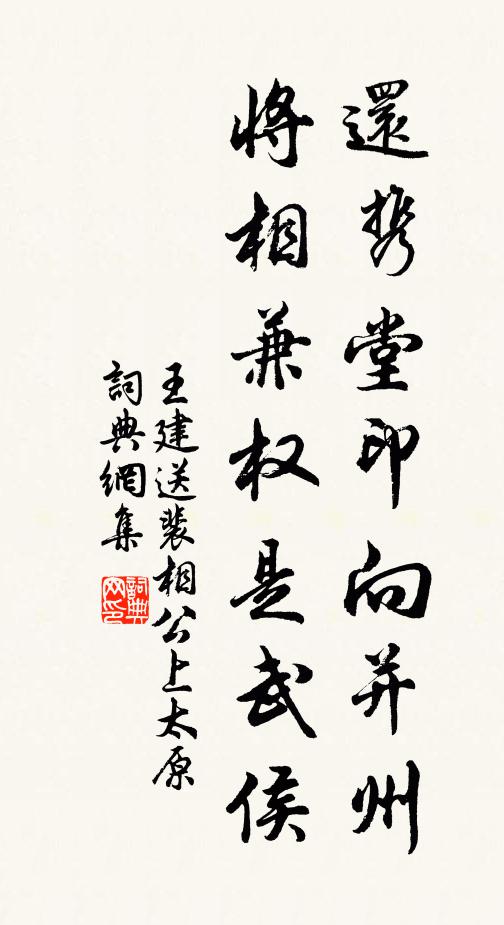 還携堂印向并州
将相兼权是武侯
王建送裴相公上太原
詞典網集
詞典网印